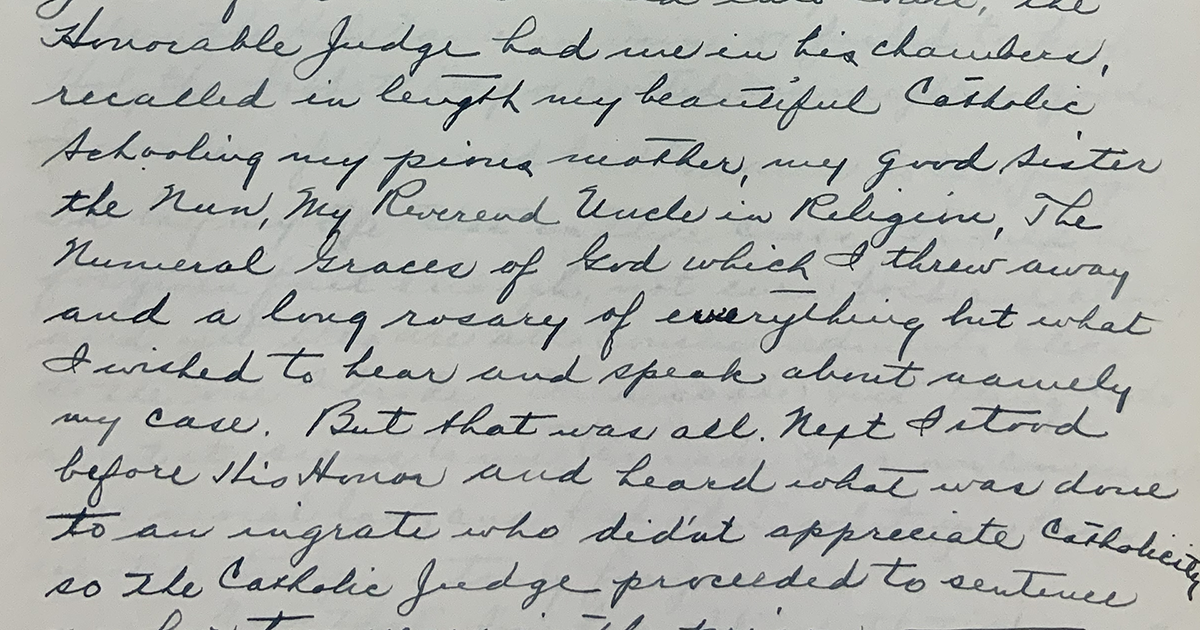 the
Honorable Judge had me in his chambers,
recalled in length my beautiful Catholic
schooling my pious mother, my good sister
the Nun, My Reverend Uncle in Religion, The
Numeral Graces of God which I threw away
and a long rosary of everything but what
I wished to hear and speak about namely
my case. But that was all. Next I stood
before His Honor and heard what was done
to an ingrate who did'nt appreciate Catholicity
so The Catholic Judge proceeded to sentence